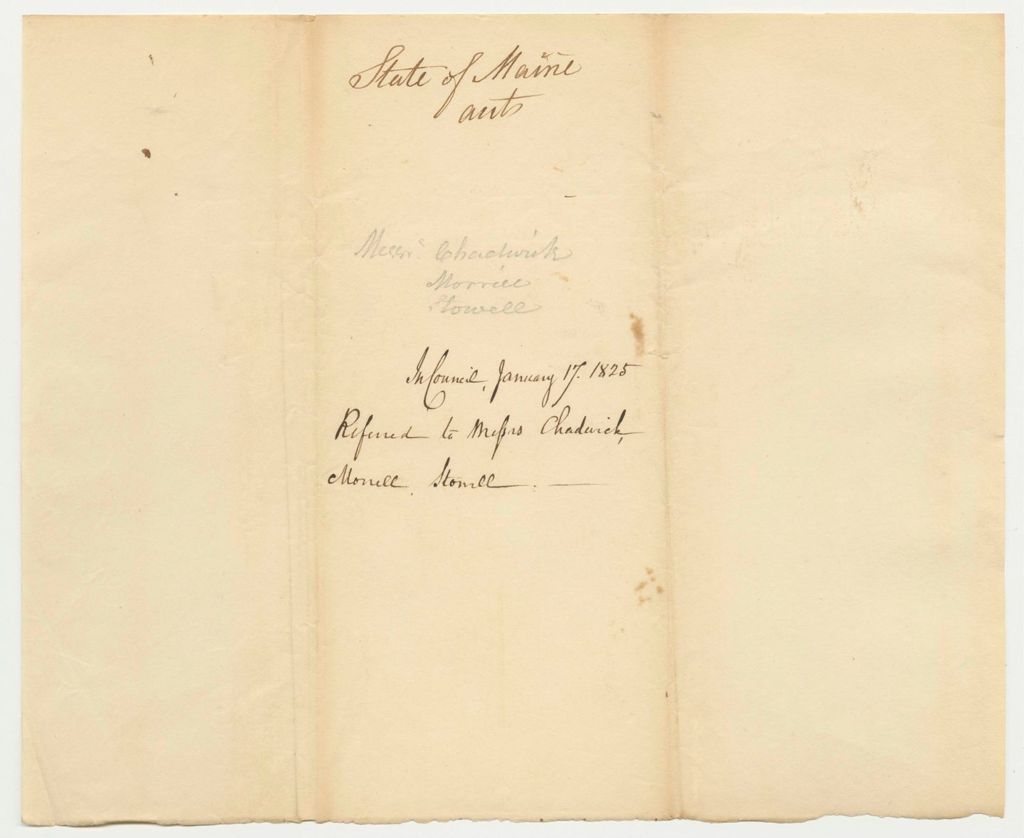 State of Maine
acct
Messrs. Chadwick
Morrill
Stowell
In Council, January 17. 1825
Referred to Messrs Chadwick,
Morrill, Stowell. —